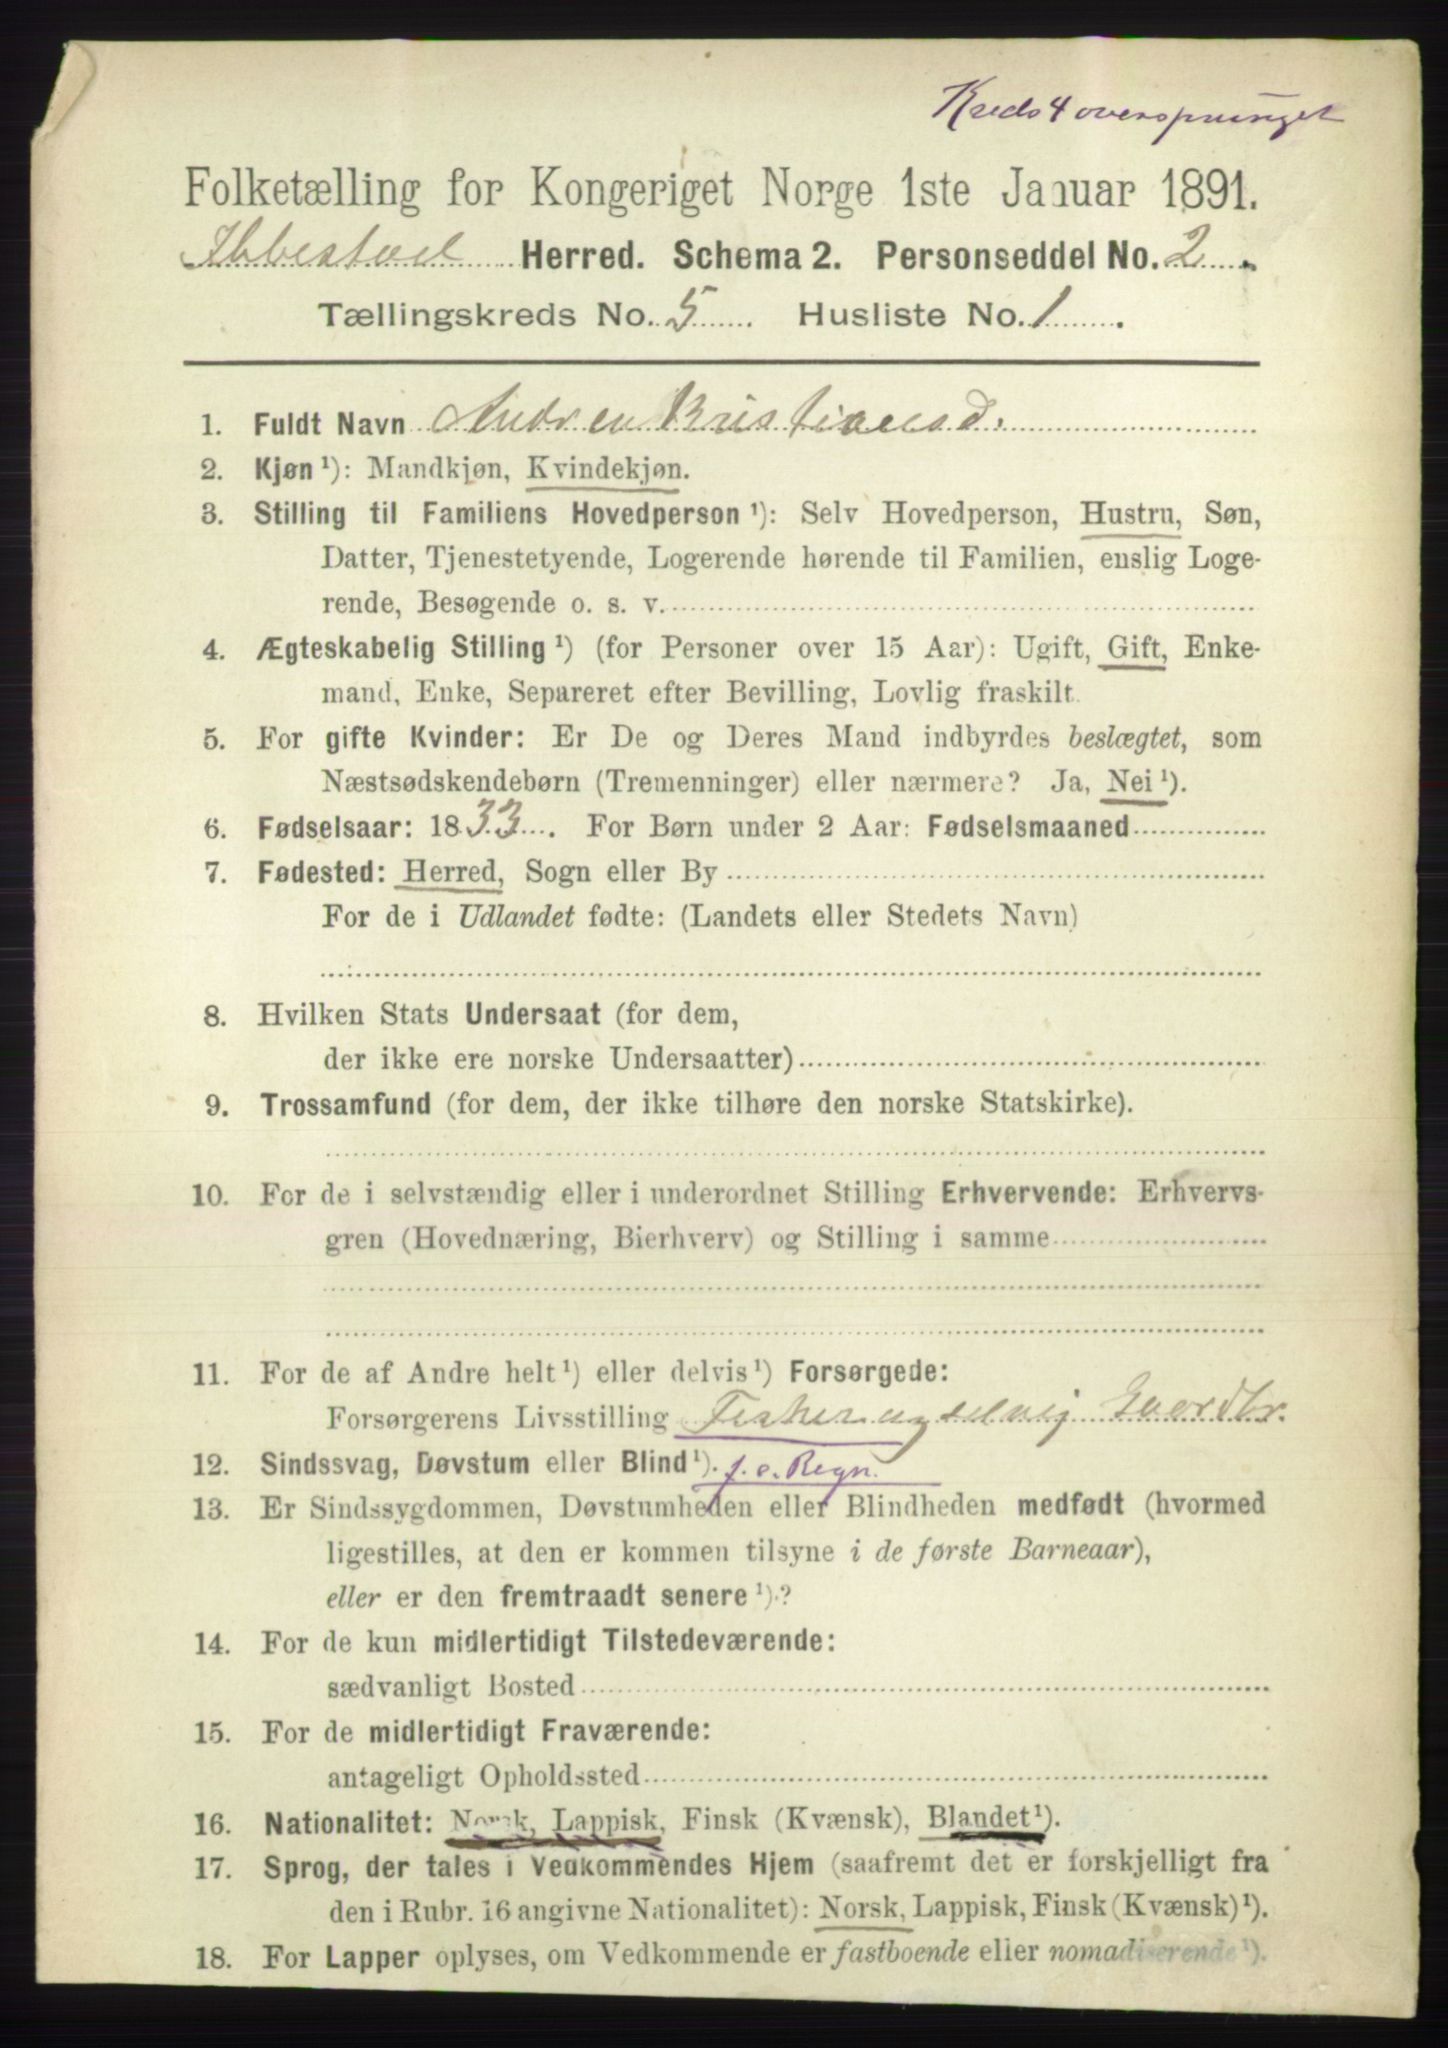 Kreds 4 oversprunget
Folketælling for Kongeriget Norge 1ste Januar 1891.
Ibbestad Herred. Schema 2. Personseddel No. 2.
Tællingskreds No. 5 Husliste No. 1.
1. Fuldt Navn Andrea Kristiansd.
2. Kjøn ¹): Mandkjøn, Kvindekjøn.
3. Stilling til Familiens Hovedperson ¹): Selv Hovedperson, Hustru, Søn,
Datter, Tjenestetyende, Logerende hørende til Familien, enslig Loge-
rende, Besøgende o. s. v.
4. Ægteskabelig Stilling ¹) (for Personer over 15 Aar): Ugift, Gift, Enke-
mand, Enke, Separeret efter Bevilling, Lovlig fraskilt.
5. For gifte Kvinder: Er De og Deres Mand indbyrdes beslægtet, som
Næstsødskendebørn (Tremenninger) eller nærmere? Ja, Nei ¹).
6. Fødselsaar: 1833. For Børn under 2 Aar: Fødselsmaaned
7. Fødested: Herred, Sogn eller By
For de i Udlandet fødte: (Landets eller Stedets Navn)
8. Hvilken Stats Undersaat (for dem,
der ikke ere norske Undersaatter)
9. Trossamfund (for dem, der ikke tilhøre den norske Statskirke).
10. For de i selvstændig eller i underordnet Stilling Erhvervende: Erhvervs-
gren (Hovednæring, Bierhverv) og Stilling i samme
11. For de af Andre helt ¹) eller delvis ¹) Forsørgede:
Forsørgerens Livsstilling Fisker og selvej Gaardbr.
12. Sindssvag, Døvstum eller Blind ¹). f. e. Regn.
13. Er Sindssygdommen, Døvstumheden eller Blindheden medfødt (hvormed
ligestilles, at den er kommen tilsyne i de første Barneaar),
eller er den fremtraadt senere ¹)?
14. For de kun midlertidigt Tilstedeværende:
sædvanligt Bosted
15. For de midlertidigt Fraværende:
antageligt Opholdssted
16. Nationalitet: Norsk, Lappisk, Finsk (Kvænsk), Blandet ¹).
17. Sprog, der tales i Vedkommendes Hjem (saafremt det er forskjelligt fra
den i Rubr. 16 angivne Nationalitet): Norsk, Lappisk, Finsk (Kvænsk) ¹).
18. For Lapper oplyses, om Vedkommende er fastboende eller nomadiserende ¹).